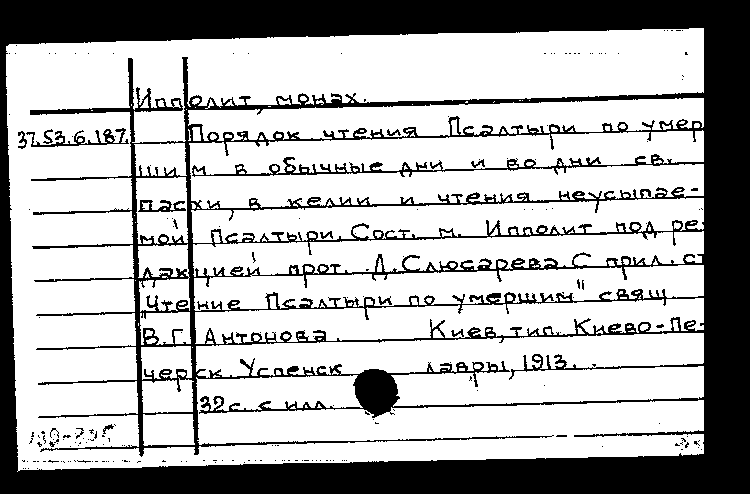 Ипполит, монах.
37.53.6.187. Порядок чтения Псалтыри по умер
шим в обычные дни и во дни св.
пасхи, в келии и чтения неусыпае-
мой Псалтыри. Сост. м. Ипполит под ре
дакцией прот. Д. Слюсарева. С прил. ст
"Чтение Псалтыри по умершим" свящ.
В.Г. Антонова. Киев, тип. Киево-Пе-
черск. Успенск лавры, 1913.
32 с. с илл.